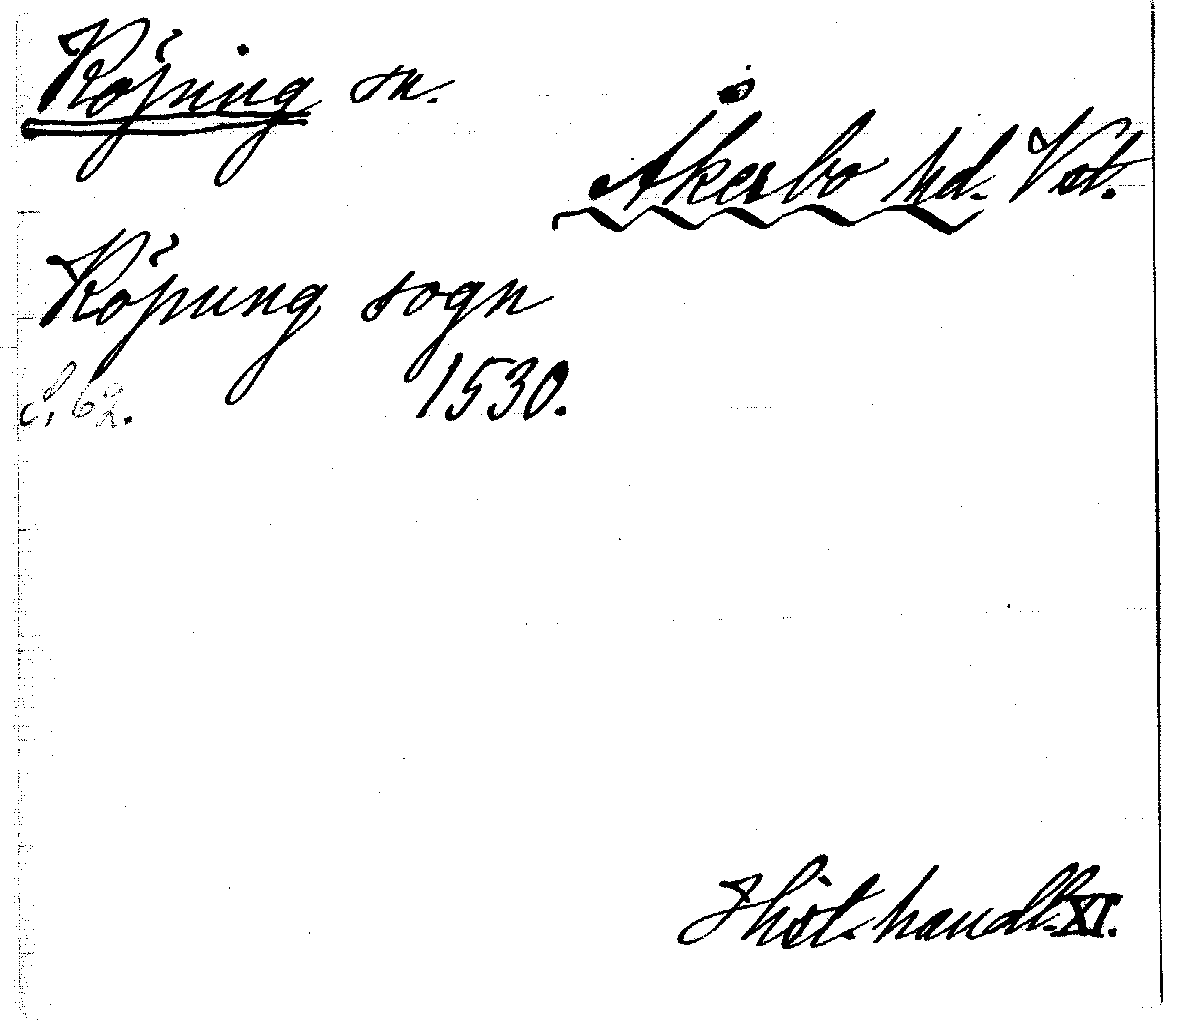 Köping sn.
Åkerbo hd. Vstl.
Köpung sogn
S. 62. 1530.
Hist. handl. XI.